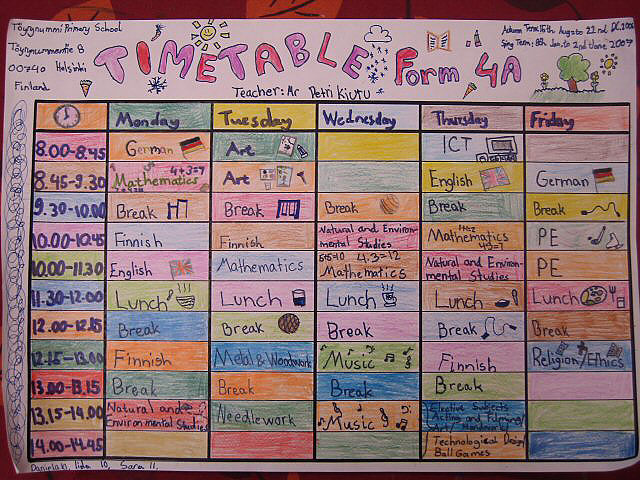 Töyrynummi Primary School
Töyrynummentie 8
00740 Helsinki
Finland
TIMETABLE Form 4A
Autumn Term: 15th August to 22nd
Spring Term: 8th Jan. to 2nd June 2007
Teacher: Mr Petri
Monday Tuesday Wednesday Thursday Friday
8.00-8.45 German Art ICT
8.45-9.30 Mathematics 4+3=7 Art English German
9.30-10.00 Break Break Break Break Break
10.00-10.45 Finnish Finnish Natural and Environmental Studies Mathematics PE
10.00-11.30 English Mathematics Mathematics 4.3=12 Natural and Environmental Studies PE
11.30-12.00 Lunch Lunch Lunch Lunch Lunch
12.00-12.15 Break Break Break Break Break
12.15-13.00 Finnish Metal & Woodwork Music Finnish Religion/Ethics
13.00-13.15 Break Break Break Break
13.15-14.00 Natural and Environmental Studies Needlework Music Elective Subjects Acting and
14.00-14.45 Technological Design/ Ball Games
Iida 10, Sara 11,